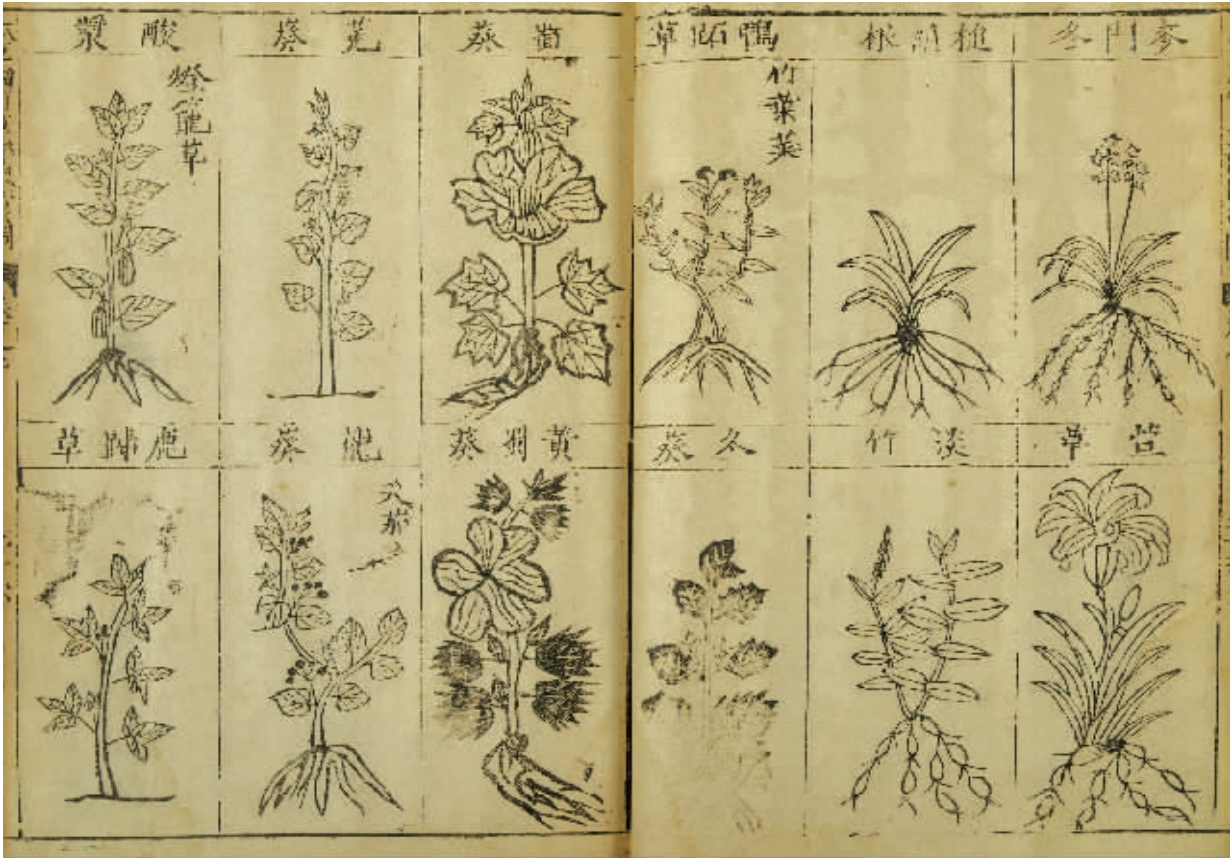 麥門冬
搥胡根
鴨跖草
竹葉菜
蜀葵
菟葵
酸漿
燈籠草
萱草
淡竹
冬葵
黄蜀葵
龍葵
天茄
鹿蹄草